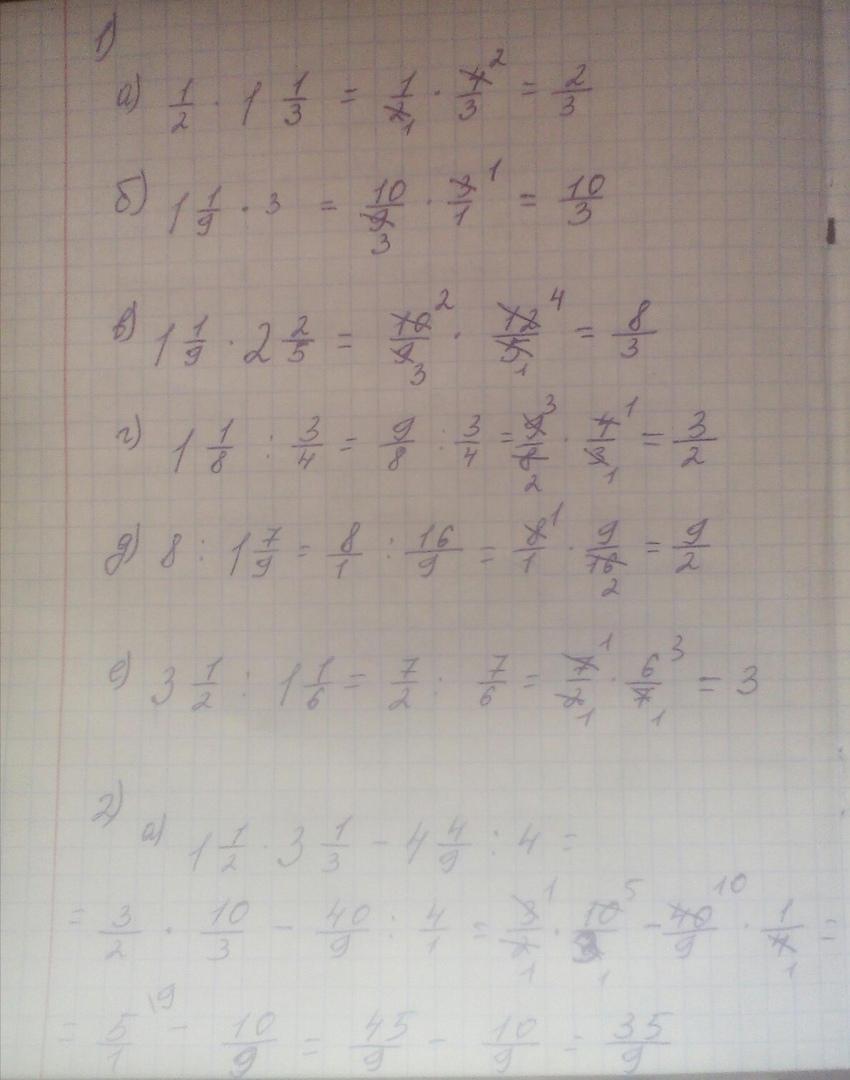 1)
а) 1/2 · 1 1/3 = 1/2 1 · 4/3 2 = 2/3
б) 1 1/9 · 3 = 10/9 3 · 3/1 1 = 10/3
в) 1 1/9 · 2 2/5 = 10/9 2 3 · 12/5 4 1 = 8/3
г) 1 1/8 : 3/4 = 9/8 : 3/4 = 9/8 3 2 · 4/3 1 1 = 3/2
д) 8 : 1 7/9 = 8/1 : 16/9 = 8/1 1 · 9/16 2 = 9/2
е) 3 1/2 : 1 1/6 = 7/2 : 7/6 = 7/2 1 1 · 6/7 3 1 = 3
2)
а) 1 1/2 · 3 1/3 - 4 4/9 : 4 =
= 3/2 · 10/3 - 40/9 : 4/1 = 3/2 1 1 · 10/3 5 1 - 40/9 10 · 1/4 1 =
= 5/1 \9 - 10/9 = 45/9 - 10/9 = 35/9